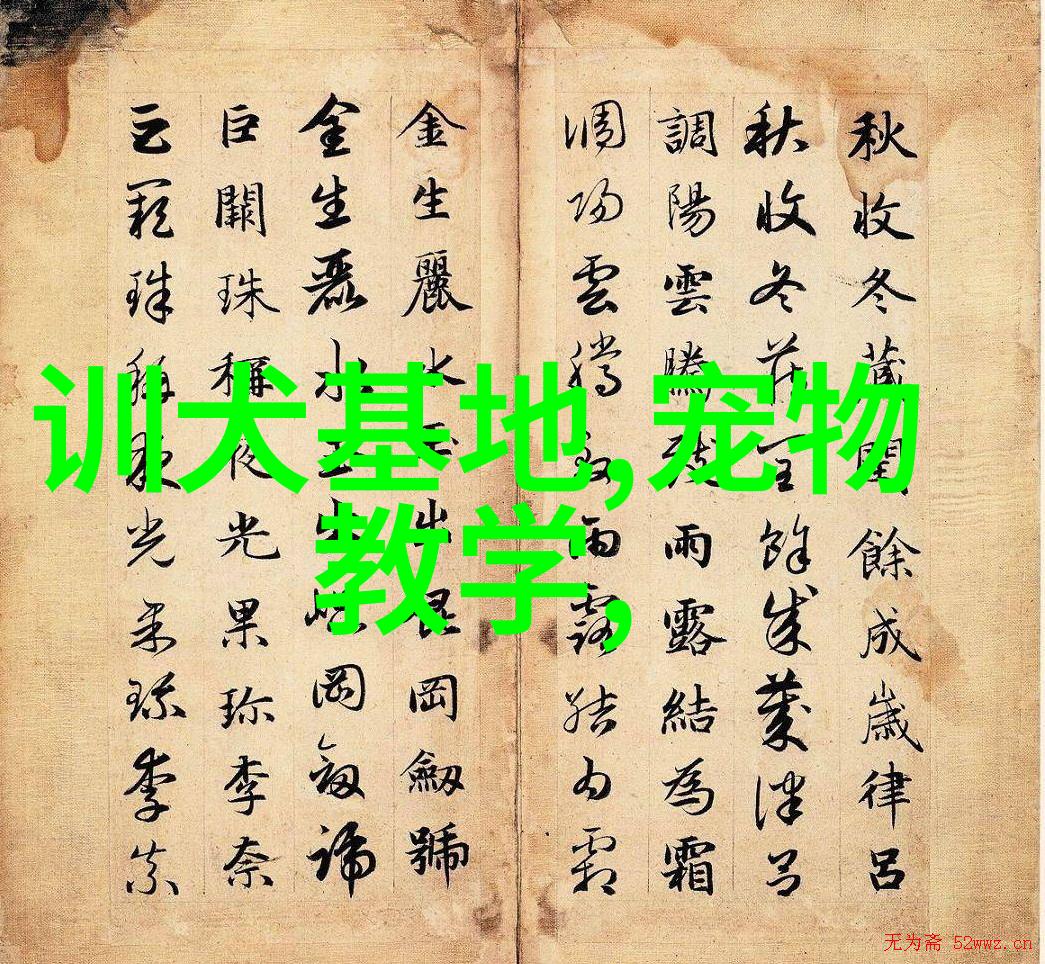 秋收冬藏閏餘成歲律呂
秋收冬藏閏餘成歲律呂
調陽雲騰致雨露結為霜
調陽雲騰致雨露結為霜
金生麗水玉出崑岡劍號
金生麗水玉出崑岡劍號
巨闕珠稱夜光果珍李奈
巨闕珠稱夜光果珍李奈
训犬基地,宠物
教学,
无为斋 52wwz.cn